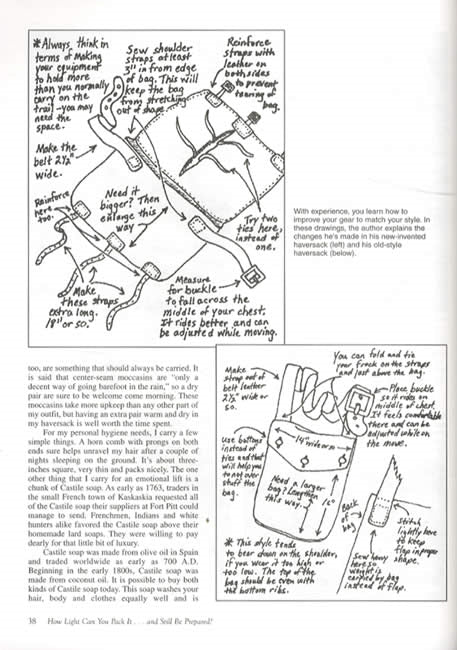 *Always, think in
terms of making
your equipment
to hold more
than you normally
carry on the
trail—you may
need the
space.
Sew shoulder
straps at least
3" in from edge
of bag. This will
keep the bag
from stretching
out of shape.
Reinforce
straps with
leather on
both sides
to prevent
tearing of
bag.
Make the
belt 2½"
wide.
Reinforce
here
too.
Need it
bigger? Then
enlarge this
way
Try two
ties here,
instead of
one.
Make
these straps
extra long.
18" or so.
Measure
for buckle
to fall across the
middle of your chest.
It rides better and can
be adjusted while moving.
With experience, you learn how to
improve your gear to match your style. In
these drawings, the author explains the
changes he's made in his new-invented
haversack (left) and his old-style
haversack (below).
too, are something that should always be carried. It
is said that center-seam moccasins are "only a
decent way of going barefoot in the rain," so a dry
pair are sure to be welcome come morning. These
moccasins take more upkeep than any other part of
my outfit, but having an extra pair warm and dry in
my haversack is well worth the time spent.
For my personal hygiene needs, I carry a few
simple things. A horn comb with prongs on both
ends sure helps unravel my hair after a couple of
nights sleeping on the ground. It's about three-
inches square, very thin and packs nicely. The one
other thing that I carry for an emotional lift is a
chunk of Castile soap. As early as 1763, traders in
the small French town of Kaskaskia requested all
of the Castile soap their suppliers at Fort Pitt could
manage to send. Frenchmen, Indians and white
hunters alike favored the Castile soap above their
homemade lard soaps. They were willing to pay
dearly for that little bit of luxury.
Castile soap was made from olive oil in Spain
and traded worldwide as early as 700 A.D.
Beginning in the early 1800s, Castile soap was
made from coconut oil. It is possible to buy both
kinds of Castile soap today. This soap washes your
hair, body and clothes equally well and is
You can fold and tie
your frock on the straps
and just above the bag.
Make
strap out of
belt leather
2½" wide or
so.
Place buckle
so it rides on
middle of chest
It feels comfortable
there and can be
adjusted while on
the move.
Use buttons
instead of
ties and that
will help you
to not over
stuff the
bag.
14" wide or so
Need a larger
bag? Lengthen
this way.
Back
of
bag
Stitch
lightly here
to keep
flap in proper
shape.
Sew heavy
here so
weight is
carried by bag
instead of flap.
*This style tends
to bear down on the shoulder,
if you wear it too high or
too low. The top of the
bag should be even with
the bottom ribs.
38 How Light Can You Pack It . . . and Still Be Prepared?